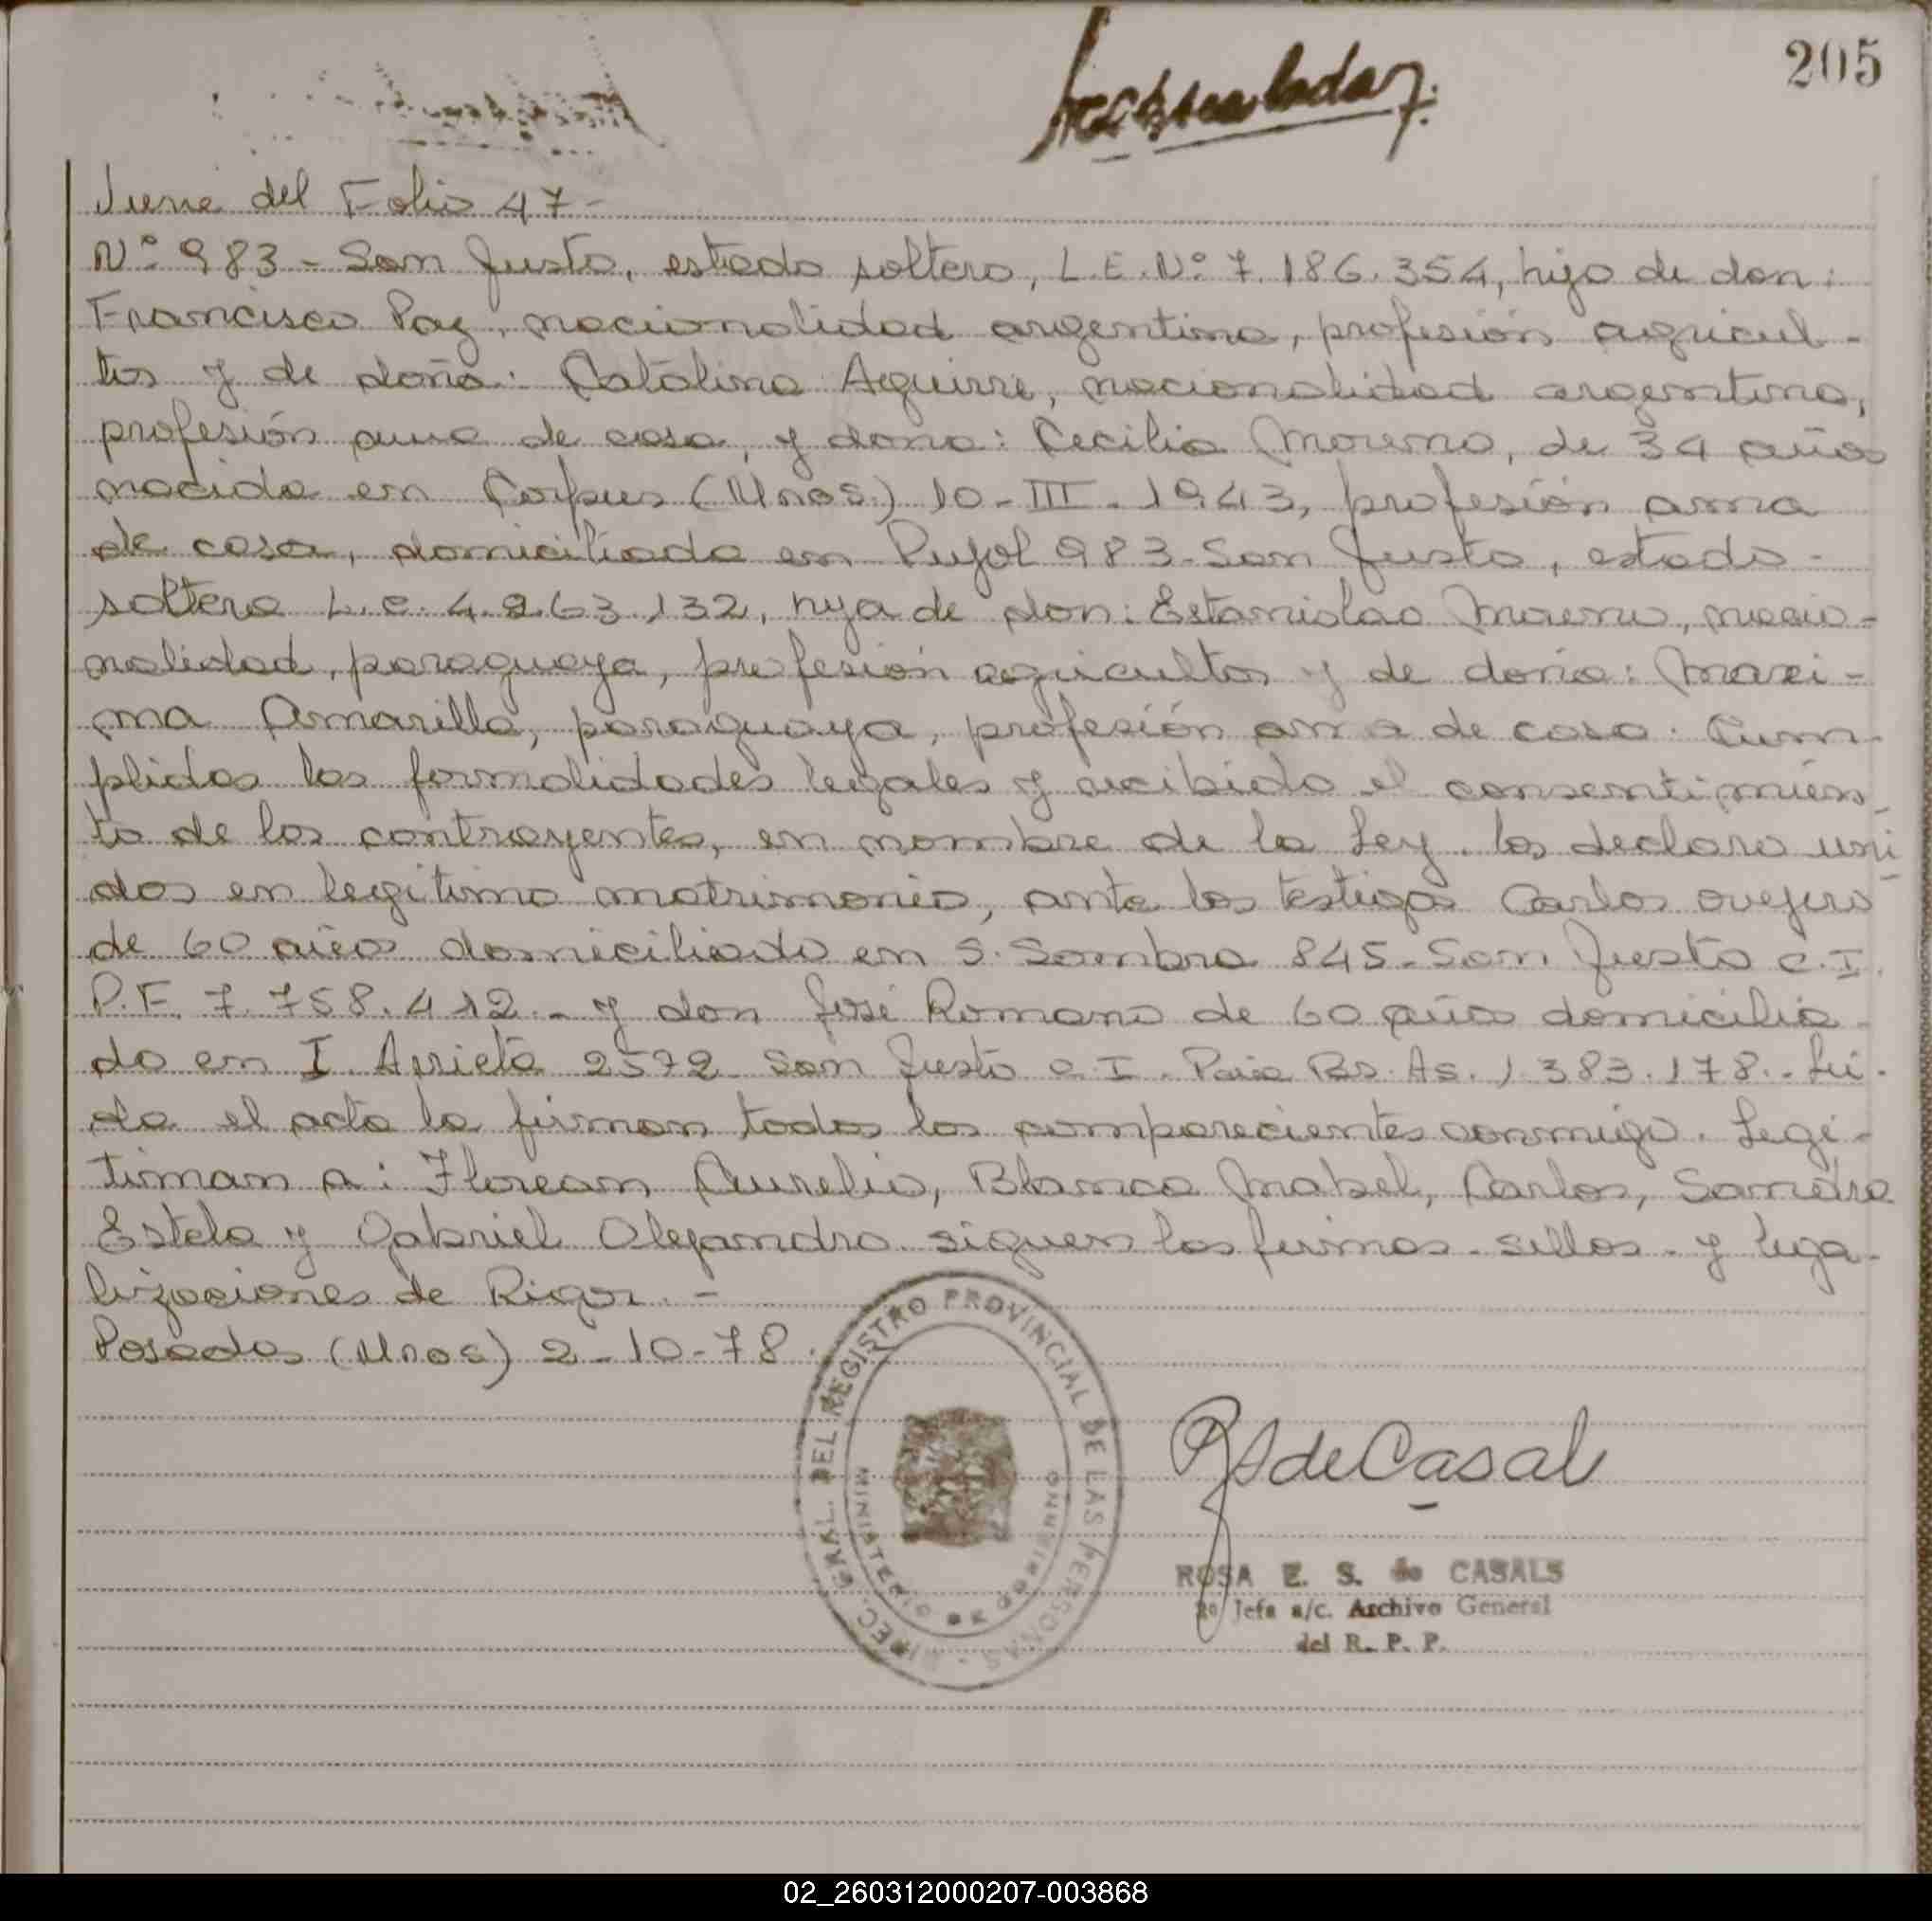 205
Viene del Folio 47-
Nº 983 - San Justo, estado soltero, L.E. Nº 7.186.354, hijo de don:
Francisco Paz, nacionalidad argentina, profesión agricul-
tor y de doña: Catalina Aguirre, nacionalidad argentina,
profesión ama de casa, y doña: Cecilia Moreno, de 34 años
nacida en Corpus (Mnes.) 10-III-1943, profesión ama
de casa, domiciliada en Pujol 983-San Justo, estado-
soltera L.C. 4.263.132, hija de don: Estanislao Moreno, nacio-
nalidad, paraguaya, profesión agricultor y de doña: Maxi-
ma Amarilla, paraguaya, profesión ama de casa. Cum-
plidas las formalidades legales y recibido el consentimien-
to de los contrayentes, en nombre de la Ley. los declaro uni
dos en legítimo matrimonio, ante los testigos Carlos Ovejero
de 60 años domiciliado en S. Sombra 845-San Justo C.I.
P.F. 7.758.412.- y don José Romano de 60 años domicilia-
do en I. Arrieta 2572 San Justo C.I. Pcia Bs. As. 1.383.178.- Leí-
da el acta la firman todos los comparecientes conmigo. Legi-
timan a: Florean Aurelio, Blanca Mabel, Carlos, Sandra
Estela y Gabriel Alejandro. siguen las firmas. sellos. y lega-
lizaciones de Rigor.-
Posadas (Mnes) 2-10-78.
DIREC. GRAL. DEL REGISTRO PROVINCIAL DE LAS PERSONAS
MINISTERIO DE GOBIERNO
de Casal
ROSA E. S. de CASALS
2º Jefe a/c. Archivo General
del R. P. P.
02_260312000207-003868